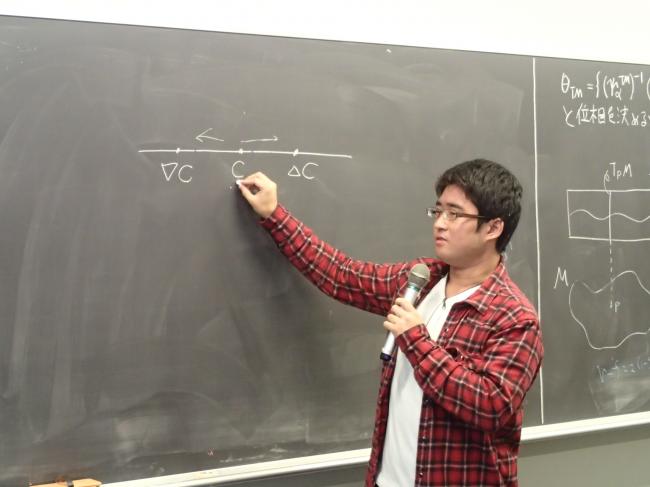 ← →
∇C C △C
θ_TM = {(γ_α^TM)^-1 (
と位相を決める
T_P M
M
P